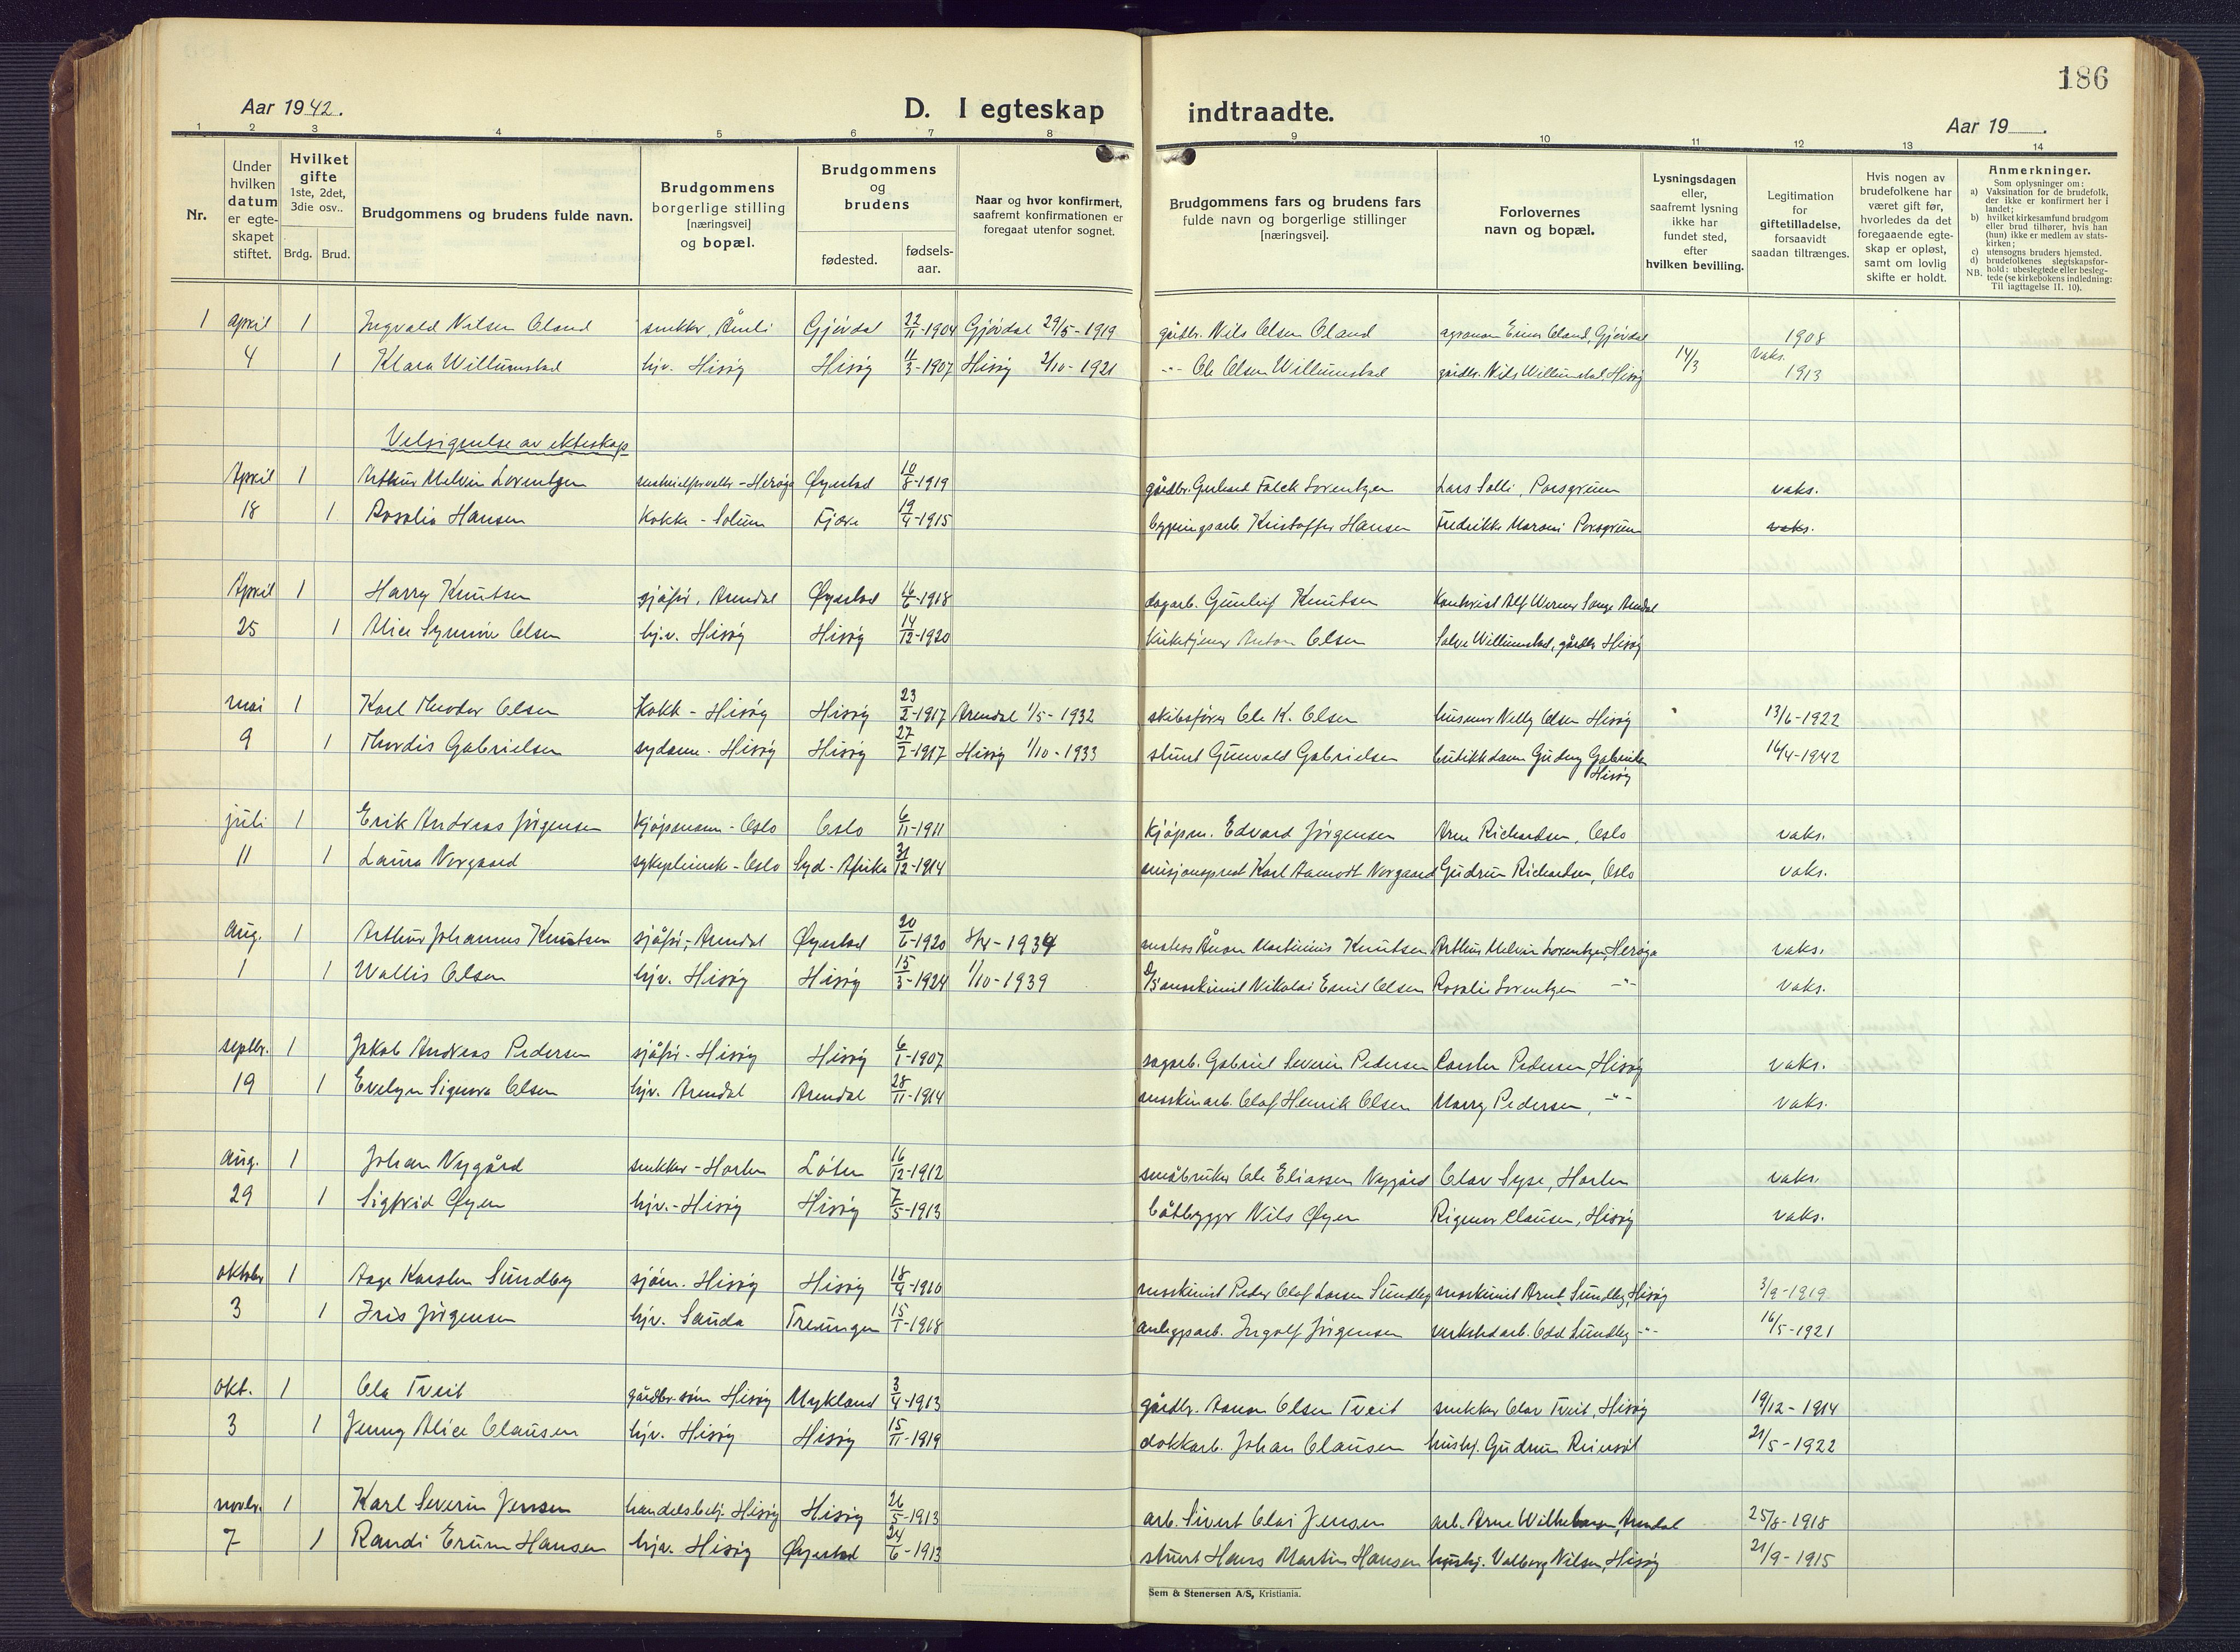 186
Aar 1942.
D. I egteskap indtraadte.
Aar 19
1 2 3 4 5 6 7 8 9 10 11 12 13 14
Nr.
Under hvilken datum er egteskapet stiftet.
Hvilket gifte 1ste, 2det, 3die osv..
Brdg. Brud.
Brudgommens og brudens fulde navn.
Brudgommens borgerlige stilling [næringsvei] og bopæl.
Brudgommens og brudens
fødested.
fødsels-aar.
Naar og hvor konfirmert, saafremt konfirmationen er foregaat utenfor sognet.
Brudgommens fars og brudens fars fulde navn og borgerlige stillinger [næringsvei].
Forlovernes navn og bopæl.
Lysningsdagen eller, saafremt lysning ikke har fundet sted, efter hvilken bevilling.
Legitimation for giftetilladelse, forsaavidt saadan tiltrænges.
Hvis nogen av brudefolkene har været gift før, hvorledes da det foregaaende egteskap er opløst, samt om lovlig skifte er holdt.
Anmerkninger.
Som oplysninger om:
a) Vaksination for de brudefolk, der ikke er konfirmert her i landet;
b) hvilket kirkesamfund brudgom eller brud tilhører, hvis han (hun) ikke er medlem av statskirken;
c) utensogns bruders hjemsted.
d) brudefolkenes slegtskapsforhold: ubeslegtede eller beslegtede (se kirkebokens indledning:
NB. Til iagttagelse II. 10).
1 april 1 Ingvald Nilsen Oland snekker, Åmli Gjøvdal 22/11-1904 Gjøvdal 29/5-1919 gårdbr. Nils Olsen Oland agronom Einar Oland, Gjøvdal 1908
4 1 Klara Willumstad hjv. Hisøy Hisøy 11/3-1907 Hisøy 2/10-1921 -"- Ole Olsen Willumstad gårdbr. Nils Willumstad, Hisøy 14/3 vaks. 1913
Velsignelse av ekteskap
April 1 Arthur Melvin Lorentzen Herøya Øyestad 10/8-1919 gårdbr. Gerhard Falck Lorentzen Lars Solli, Porsgrunn vaks.
18 1 Rosalie Hansen Kokke - Solum Fjære 19/4-1915 bygningsarb. Kristoffer Hansen Fredrikke Maroni Porsgrunn vaks.
April 1 Harry Knutsen sjåfør, Arendal Øyestad 16/6-1918 dagarb. Gunleif Knutsen Kontorist Alf Werner Songe Arendal
25 1 Alice Synnøve Olsen hjv. Hisøy Hisøy 14/12-1920 Kirketjener Anton Olsen Salve Willumstad, gårdbr. Hisøy
mai 1 Karl Theodor Olsen Kokk - Hisøy Hisøy 23/2-1917 Arendal 1/5-1932 skibsfører Ole K. Olsen husmor Nelly Olsen Hisøy 13/6-1922
9 1 Thordis Gabrielsen sydame - Hisøy Hisøy 27/7-1917 Hisøy 1/10-1933 stuert Gunvald Gabrielsen butikkdame Gudny Gabrielsen Hisøy 16/4-1942
juli 1 Erik Andreas Jørgensen Kjøpmann - Oslo Oslo 6/11-1911 Kjøpm. Edvard Jørgensen Arne Richardsen, Oslo vaks.
11 1 Laura Norgaard sykepleiersk - Oslo Syd-Afrika 31/12-1914 misjonsprest Karl Aamodt Norgaard Gudrun Richardsen, Oslo vaks.
Aug. 1 Arthur Johannes Knutsen sjåfør, Arendal Øyestad 20/6-1920 8/4-1934 matros Ånon Martinius Knutsen Arthur Melvin Lorentzen, Herøya vaks.
1 1 Wallis Olsen hjv. Hisøy Hisøy 15/3-1924 1/10-1939 maskinist Nikolai Emil Olsen Rosalie Lorentzen -"- vaks.
septbr. 1 Jakob Andreas Pedersen sjåfør - Hisøy Hisøy 6/1-1907 sagarb. Gabriel Severin Pedersen Carsten Pedersen, Hisøy vaks.
19 1 Evelyn Signora Olsen hjv. Arendal Arendal 28/11-1914 maskinarb. Olaf Henrik Olsen Marry Pedersen, -"- vaks.
Aug. 1 Johan Nygård snekker - Horten Løten 16/12-1912 småbruker Ole Eliassen Nygård Olav Syse, Horten vaks.
29 1 Sigfrid Øyen hjv. - Hisøy Hisøy 7/5-1913 båtbygger Nils Øyen Rigmor Clausen, Hisøy vaks.
oktober 1 Aage Karsten Sundby sjøm. Hisøy Hisøy 18/4-1910 maskinist Peder Olaf Larsen Sundby maskinist Arnt Sundby, Hisøy 3/9-1919
3 1 Iris Jørgensen hjv. Sauda Treungen 15/1-1918 anleggsarb. Ingolf Jørgensen verkstedarb. Odd Sundby -"- 16/5-1921
okt. 1 Ola Tveit gårdbr.sønn Hisøy Mykland 3/4-1913 gårdbr. Aanon Olsen Tveit snekker Olav Tveit, Hisøy 19/12-1914
3 1 Jenny Alice Clausen hjv. Hisøy Hisøy 15/11-1919 dokkarb. Johan Clausen hushj. Gudrun 21/5-1922
novbr. 1 Karl Severin Jensen handelsbetj. Hisøy Hisøy 26/5-1913 arb. Sivert Olai Jensen arb. Arne Wilhelmsen, Arendal 25/8-1918
7 1 Randi Erunn Hansen hjv. Hisøy Øyestad 24/6-1913 stuert Hans Martin Hansen hushj. Valborg Nilsen, Hisøy 21/9-1915
Sem & Stenersen A/S, Kristiania.